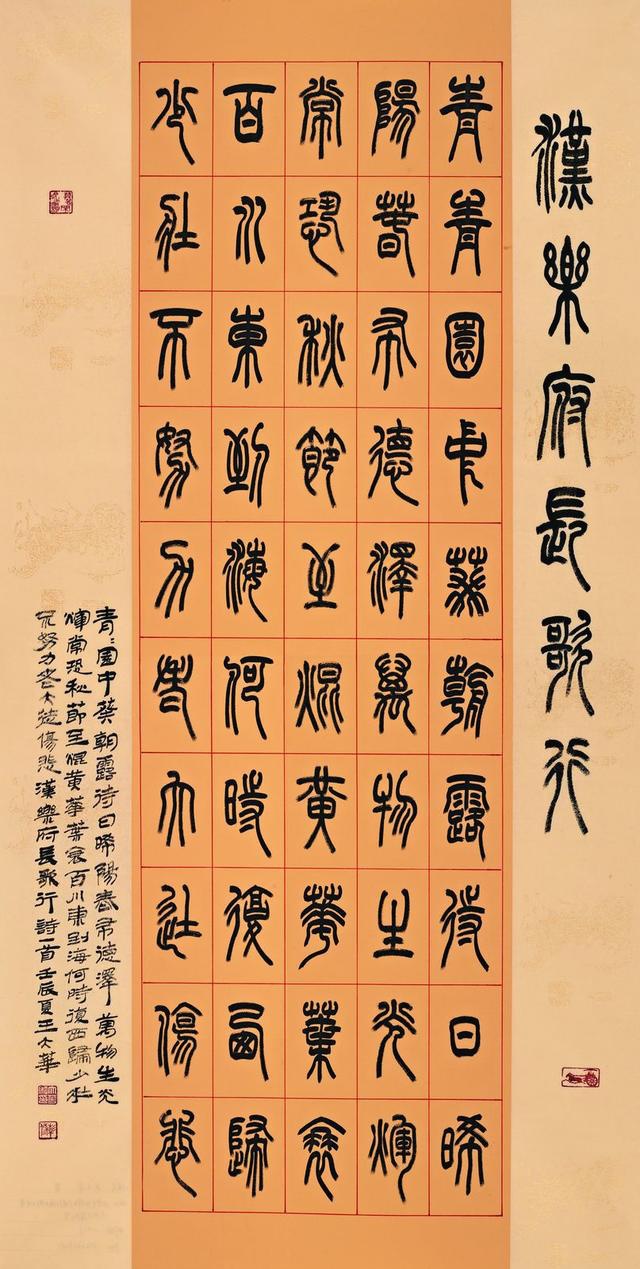 漢樂府長歌行
青青園中葵朝露待日晞
陽春布德澤萬物生光煇
常恐秋節至焜黃華葉衰
百川東到海何時復西歸
少壯不努力老大徒傷悲
青〻園中葵朝露待日晞陽春布德澤萬物生光
煇常恐秋節至焜黃華葉衰百川東到海何時復西歸少壯
不努力老大徒傷悲漢樂府長歌行詩一首壬辰夏王大華